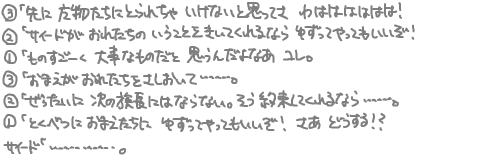 ③「先に 左物たちにとられちゃ いけないと思ってさ わはははははは!
②「サイードが おれたちの いうことをきいてくれるなら ゆずってやってもいいぞ!
①「ものすごーく 大事なものだと 思うんだよなあ コレ。
③「おまえが おれたちをさしおいて………。
②「ぜったいに 次の族長にはならない。そう 約束してくれるなら………。
①「とくべつに おまえたちに ゆずってやってもいいぞ! さあ どうする!?
サイード「……………。